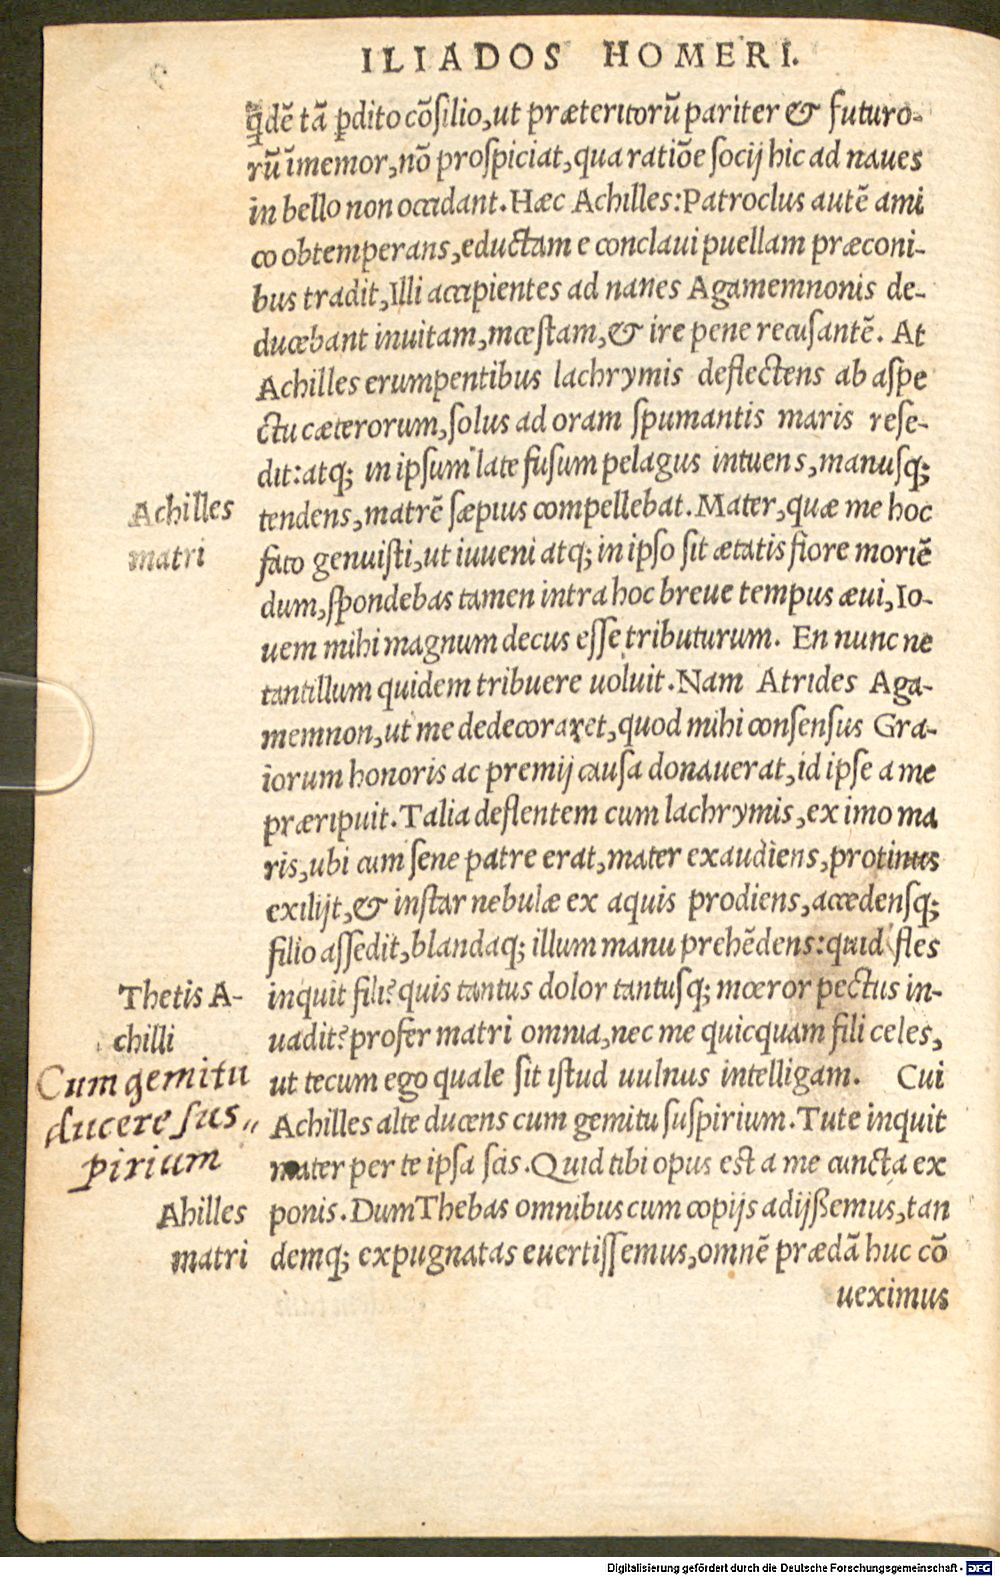 ILIADOS HOMERI.
qdē tā pdito cōsilio, ut præteritorū pariter & futuro-
rū īmemor, nō prospiciat, qua ratiōe socij hic ad naues
in bello non occidant. Hæc Achilles: Patroclus autē ami
co obtemperans, eductam e conclaui puellam præconi-
bus tradit, Illi accipientes ad nanes Agamemnonis de-
ducebant inuitam, mœstam, & ire pene recusantē. At
Achilles erumpentibus lachrymis deflectens ab aspe
ctu cæterorum, solus ad oram spumantis maris rese-
dit: atq; in ipsum late fusum pelagus intuens, manusq;
Achilles
matri
tendens, matrē sæpius compellebat. Mater, quæ me hoc
fato genuisti, ut iuueni atq; in ipso sit ætatis flore moriē
dum, spondebas tamen intra hoc breue tempus æui, Io-
uem mihi magnum decus esse tributurum. En nunc ne
tantillum quidem tribuere uoluit. Nam Atrides Aga-
memnon, ut me dedecoraret, quod mihi consensus Gra-
iorum honoris ac premij causa donauerat, id ipse a me
præripuit. Talia deflentem cum lachrymis, ex imo ma
ris, ubi cum sene patre erat, mater exaudiens, protinus
exilijt, & instar nebulæ ex aquis prodiens, accedensq;
filio assedit, blandaq; illum manu prehēdens: quid fles
Thetis A-
chilli
inquit fili? quis tantus dolor tantusq; mœror pectus in-
uadit? profer matri omnia, nec me quicquam fili celes,
ut tecum ego quale sit istud uulnus intelligam. Cui
Cum gemitu
ducere sus,,
pirium
Achilles alte ducens cum gemitu suspirium. Tute inquit
mater per te ipsa scis. Quid tibi opus est a me cuncta ex
Ahilles
matri
ponis. Dum Thebas omnibus cum copijs adijssemus, tan
demq; expugnatas euertissemus, omnē prædā huc cō
ueximus
Digitalisierung gefördert durch die Deutsche Forschungsgemeinschaft - DFG